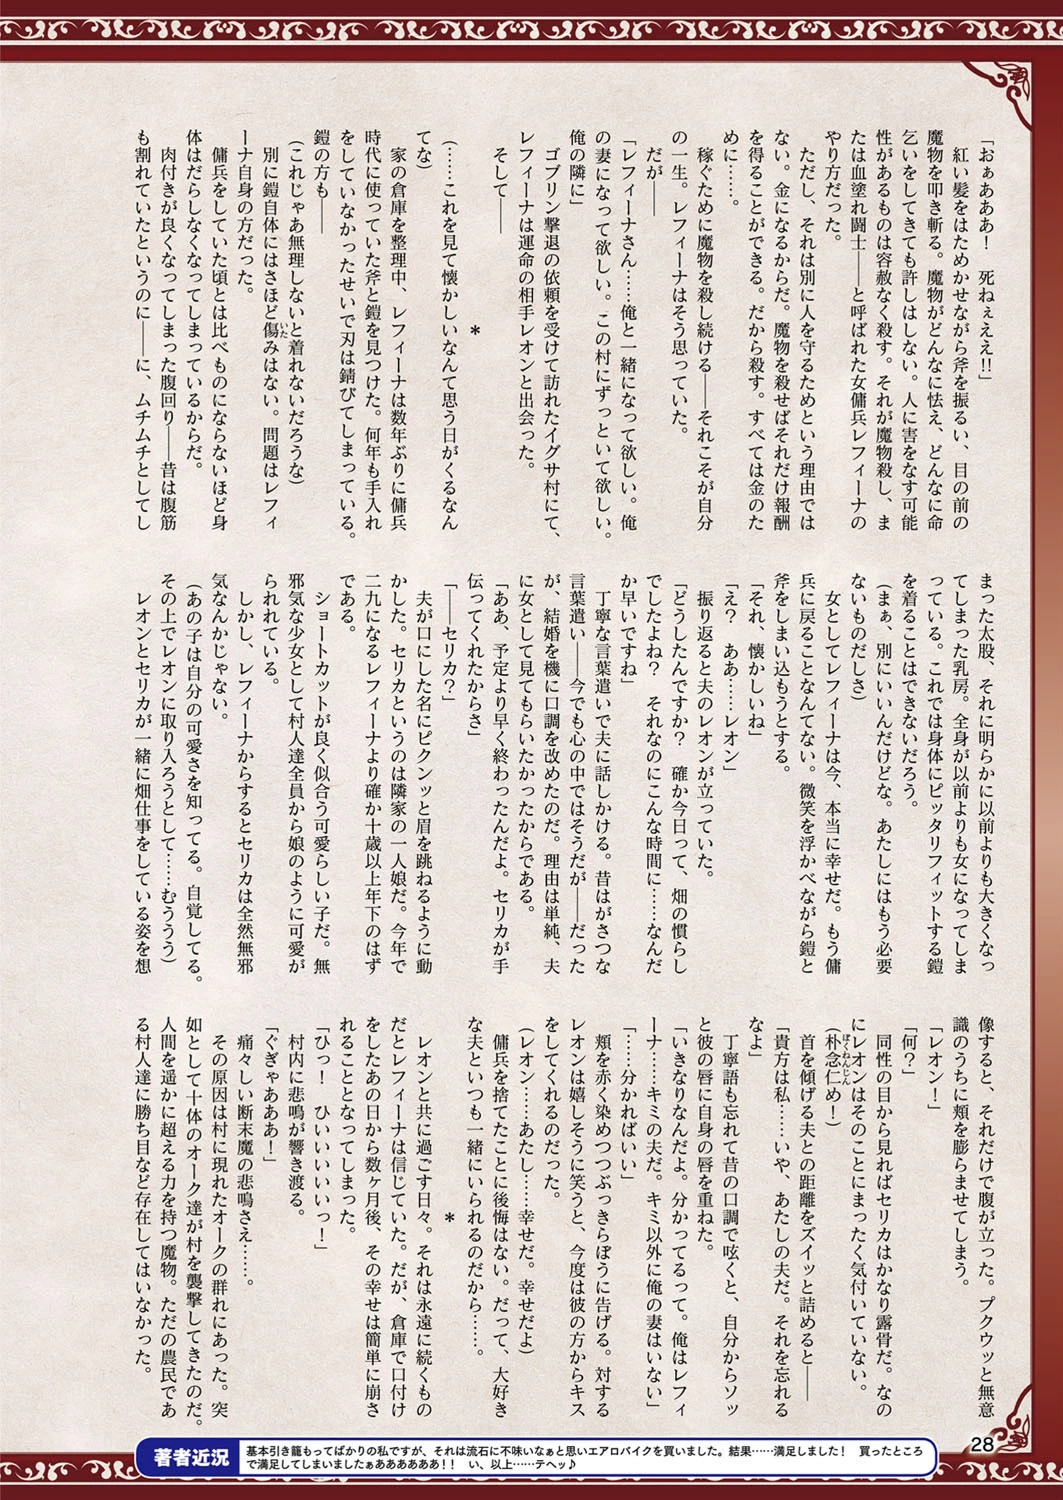 「おぉあああ！　死ねぇええ!!」
　紅い髪をはためかせながら斧を振るい、目の前の
魔物を叩き斬る。魔物がどんなに怯え、どんなに命
乞いをしてきても許しはしない。人に害をなす可能
性があるものは容赦なく殺す。それが魔物殺し、ま
たは血塗れ闘士――と呼ばれた女傭兵レフィーナの
やり方だった。
　ただし、それは別に人を守るためという理由では
ない。金になるからだ。魔物を殺せばそれだけ報酬
を得ることができる。だから殺す。すべては金のた
めに……。
　稼ぐために魔物を殺し続ける――それこそが自分
の一生。レフィーナはそう思っていた。
　だが――
「レフィーナさん……俺と一緒になって欲しい。俺
の妻になって欲しい。この村にずっといて欲しい。
俺の隣に」
　ゴブリン撃退の依頼を受けて訪れたイグサ村にて、
レフィーナは運命の相手レオンと出会った。
　そして――
＊
（……これを見て懐かしいなんて思う日がくるなん
てな）
　家の倉庫を整理中、レフィーナは数年ぶりに傭兵
時代に使っていた斧と鎧を見つけた。何年も手入れ
をしていなかったせいで刃は錆びてしまっている。
鎧の方も――
（これじゃあ無理しないと着れないだろうな）
　別に鎧自体にはさほど傷みはない。問題はレフィ
ーナ自身の方だった。
　傭兵をしていた頃とは比べものにならないほど身
体はだらしなくなってしまっているからだ。
　肉付きが良くなってしまった腹回り――昔は腹筋
も割れていたというのに――に、ムチムチとしてし
まった太股、それに明らかに以前よりも大きくなっ
てしまった乳房。全身が以前よりも女になってしま
っている。これでは身体にピッタリフィットする鎧
を着ることはできないだろう。
（まぁ、別にいいんだけどな。あたしにはもう必要
ないものだしさ）
　女としてレフィーナは今、本当に幸せだ。もう傭
兵に戻ることなんてない。微笑を浮かべながら鎧と
斧をしまい込もうとする。
「それ、懐かしいね」
「え？　ああ……レオン」
　振り返ると夫のレオンが立っていた。
「どうしたんですか？　確か今日って、畑の慣らし
でしたよね？　それなのにこんな時間に……なんだ
か早いですね」
　丁寧な言葉遣いで夫に話しかける。昔はがさつな
言葉遣い――今でも心の中ではそうだが――だった
が、結婚を機に口調を改めたのだ。理由は単純、夫
に女として見てもらいたかったからである。
「ああ、予定より早く終わったんだよ。セリカが手
伝ってくれたからさ」
「――セリカ？」
　夫が口にした名にピクンッと眉を跳ねるように動
かした。セリカというのは隣家の一人娘だ。今年で
二九になるレフィーナより確か十歳以上年下のはず
である。
　ショートカットが良く似合う可愛らしい子だ。無
邪気な少女として村人達全員から娘のように可愛が
られている。
　しかし、レフィーナからするとセリカは全然無邪
気なんかじゃない。
（あの子は自分の可愛さを知ってる。自覚してる。
その上でレオンに取り入ろうとして……むううう）
　レオンとセリカが一緒に畑仕事をしている姿を想
像すると、それだけで腹が立った。プクウッと無意
識のうちに頬を膨らませてしまう。
「レオン！」
「何？」
　同性の目から見ればセリカはかなり露骨だ。なの
にレオンはそのことにまったく気付いていない。
（朴念仁め！）
　首を傾げる夫との距離をズイッと詰めると――
「貴方は私……いや、あたしの夫だ。それを忘れる
なよ」
　丁寧語も忘れて昔の口調で呟くと、自分からソッ
と彼の唇に自身の唇を重ねた。
「いきなりなんだよ。分かってるって。俺はレフィ
ーナ……キミの夫だ。キミ以外に俺の妻はいない」
「……分かればいい」
　頬を赤く染めつつぶっきらぼうに告げる。対する
レオンは嬉しそうに笑うと、今度は彼の方からキス
をしてくれるのだった。
（レオン……あたし……幸せだ。幸せだよ）
　傭兵を捨てたことに後悔はない。だって、大好き
な夫といつも一緒にいられるのだから……。
＊
　レオンと共に過ごす日々。それは永遠に続くもの
だとレフィーナは信じていた。だが、倉庫で口付け
をしたあの日から数ヶ月後、その幸せは簡単に崩さ
れることとなってしまった。
「ひっ！　ひいいいいいっ！」
　村内に悲鳴が響き渡る。
「ぐぎゃあああ！」
　痛々しい断末魔の悲鳴さえ……。
　その原因は村に現れたオークの群れにあった。突
如として十体のオーク達が村を襲撃してきたのだ。
人間を遥かに超える力を持つ魔物。ただの農民であ
る村人達に勝ち目など存在してはいなかった。
28
著者近況
基本引き籠もってばかりの私ですが、それは流石に不味いなぁと思いエアロバイクを買いました。結果……満足しました！　買ったところ
で満足してしまいましたぁああああああ!!　い、以上……テヘッ♪